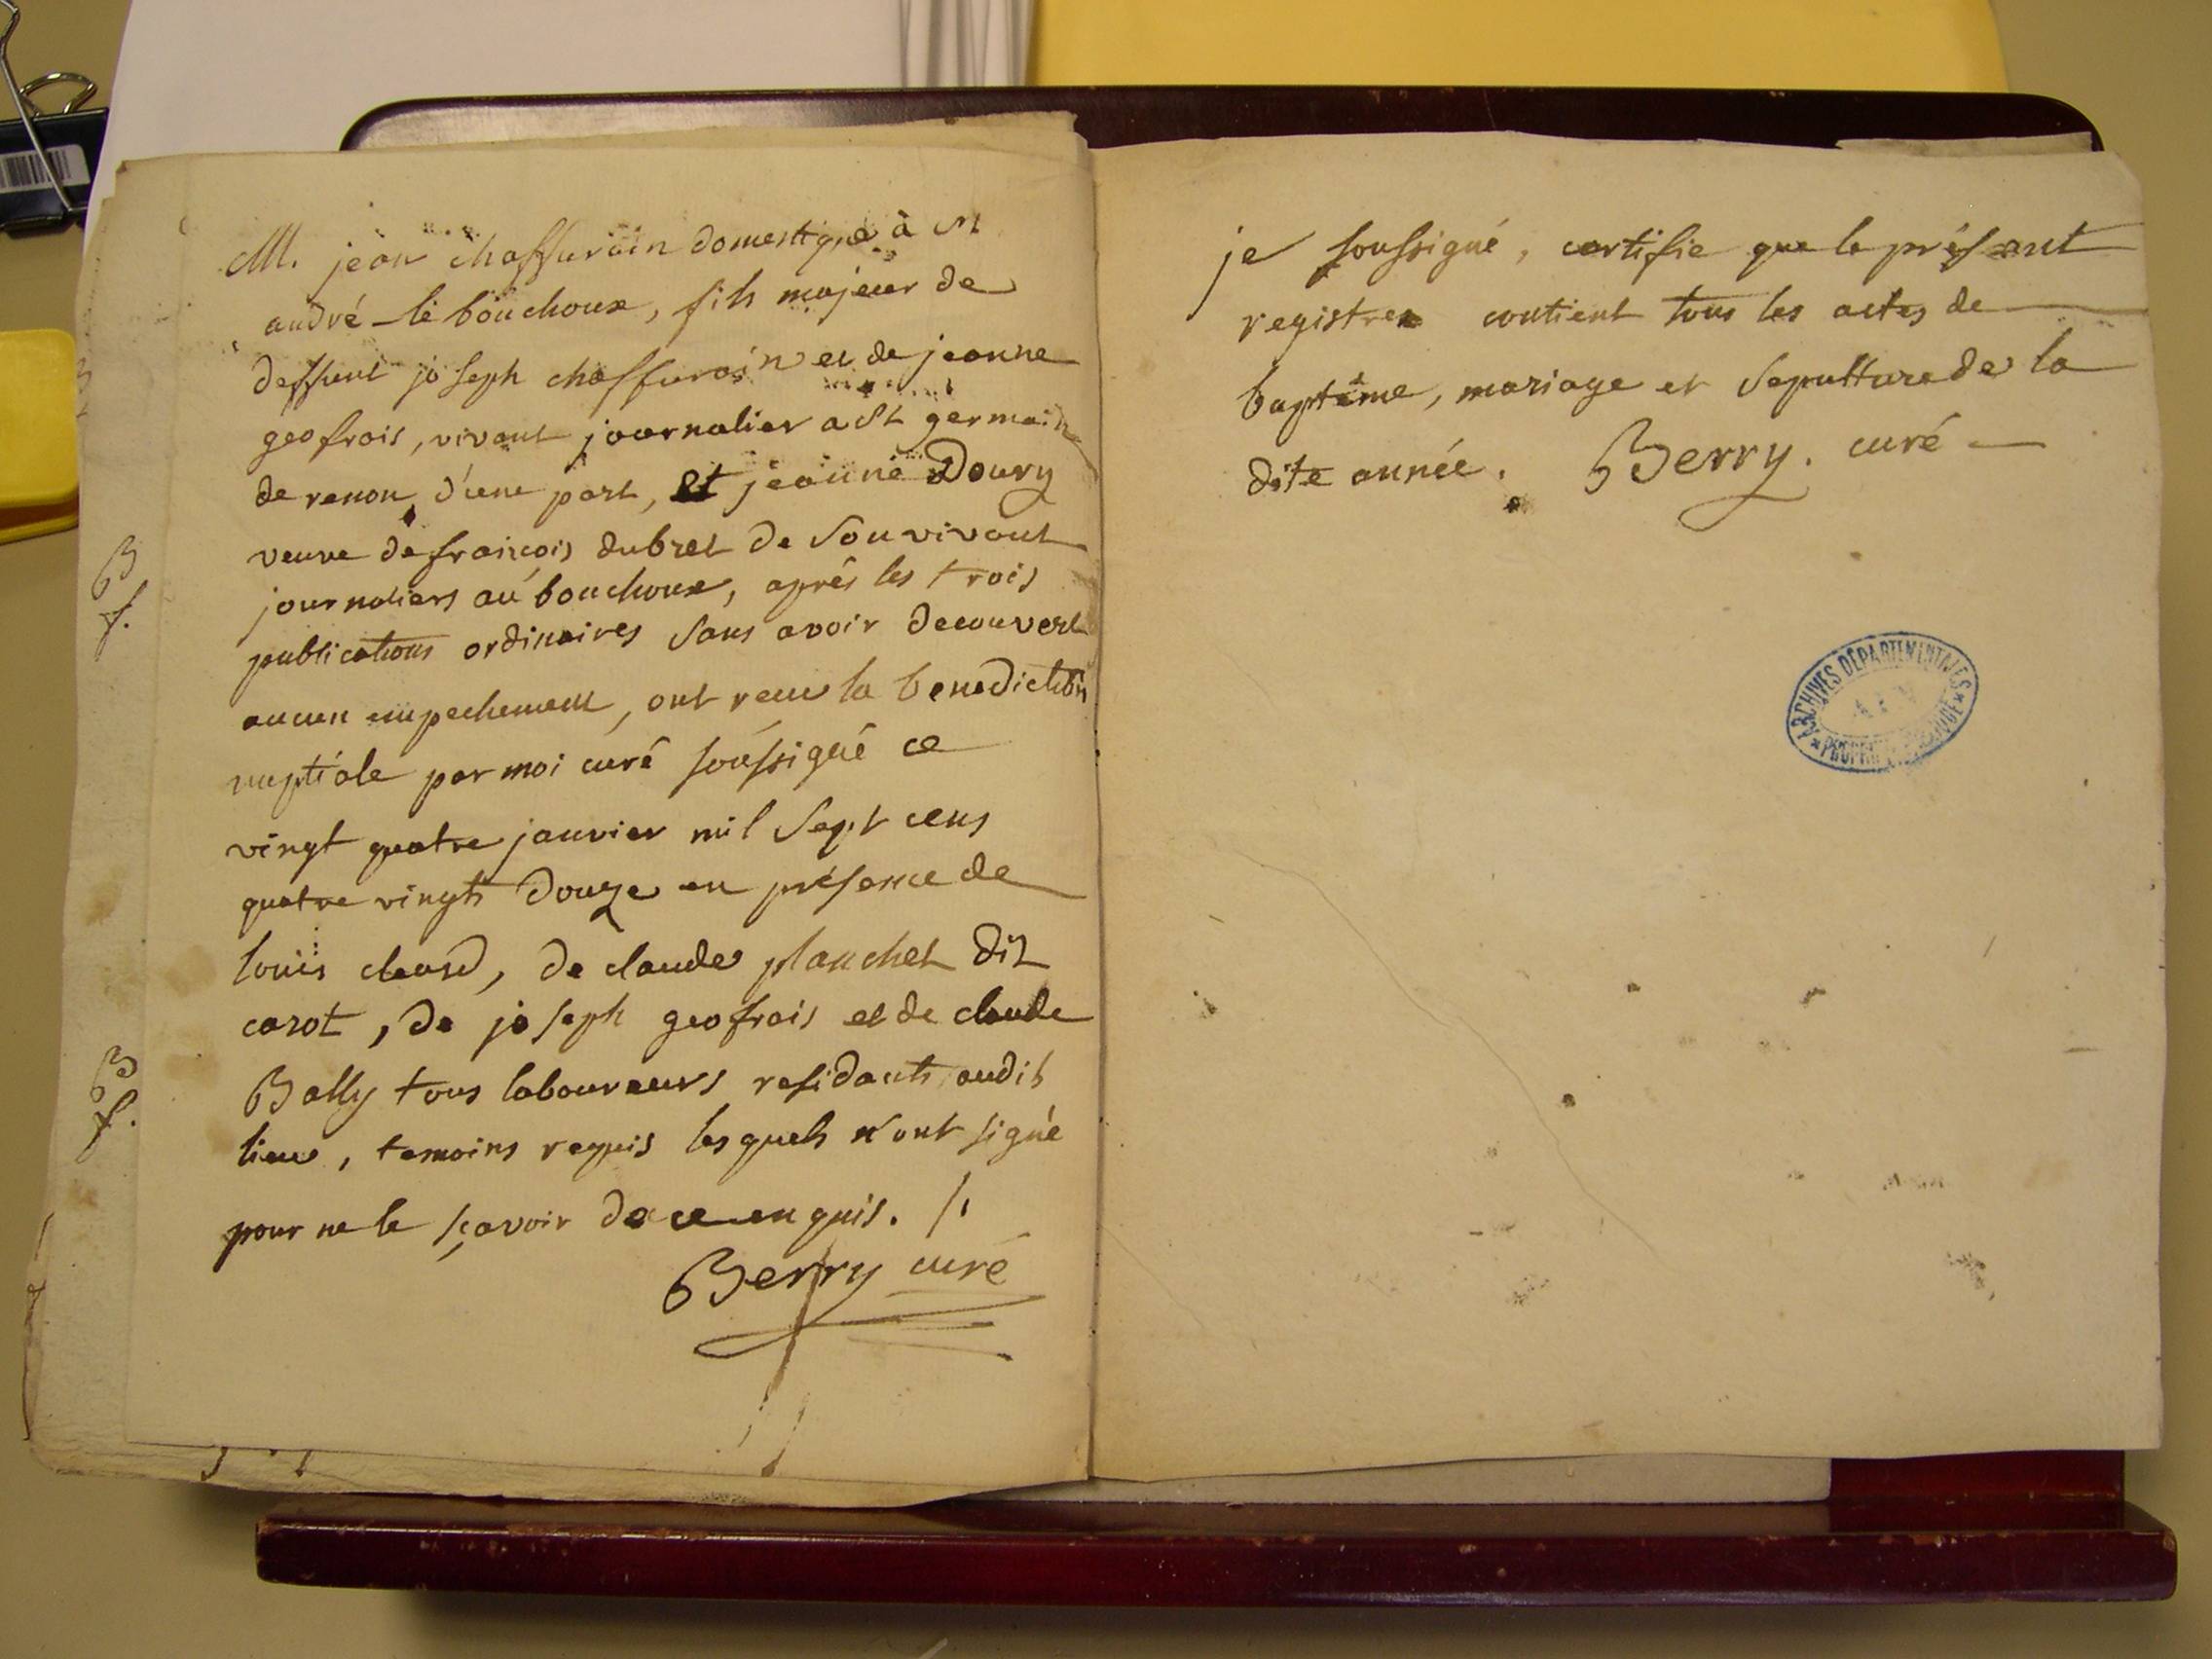 M. jean chaffurain domestique à St
andré le bouchoux, fils majeur de
deffunt joseph chaffurain et de jeanne
geofrais, vivant journalier a St germain
de renon, d'une part, Et jeanne Doury
veuve de françois dubret de son vivant
journaliers au bouchoux, après les trois
publications ordinaires sans avoir decouvert
aucun empechement, ont recu la benediction
nuptiale par moi curé soussigné ce
vingt quatre janvier mil sept cens
quatre vingts douze en présence de
louis cleard, de claude planchet dit
carot, de joseph geofrais et de claude
Bally tous laboureurs residants audit
lieu, temoins requis lesquels n'ont signé
pour ne le sçavoir de ce enquis. /.
Berry curé
B
f.
B
f.
je soussigné, certifie que le présant
registre contient tous les actes de
baptême, mariage et sepulture de la
dite année. Berry. curé
ARCHIVES DÉPARTEMENTALES
AIN
PROPRIÉTÉ PUBLIQUE